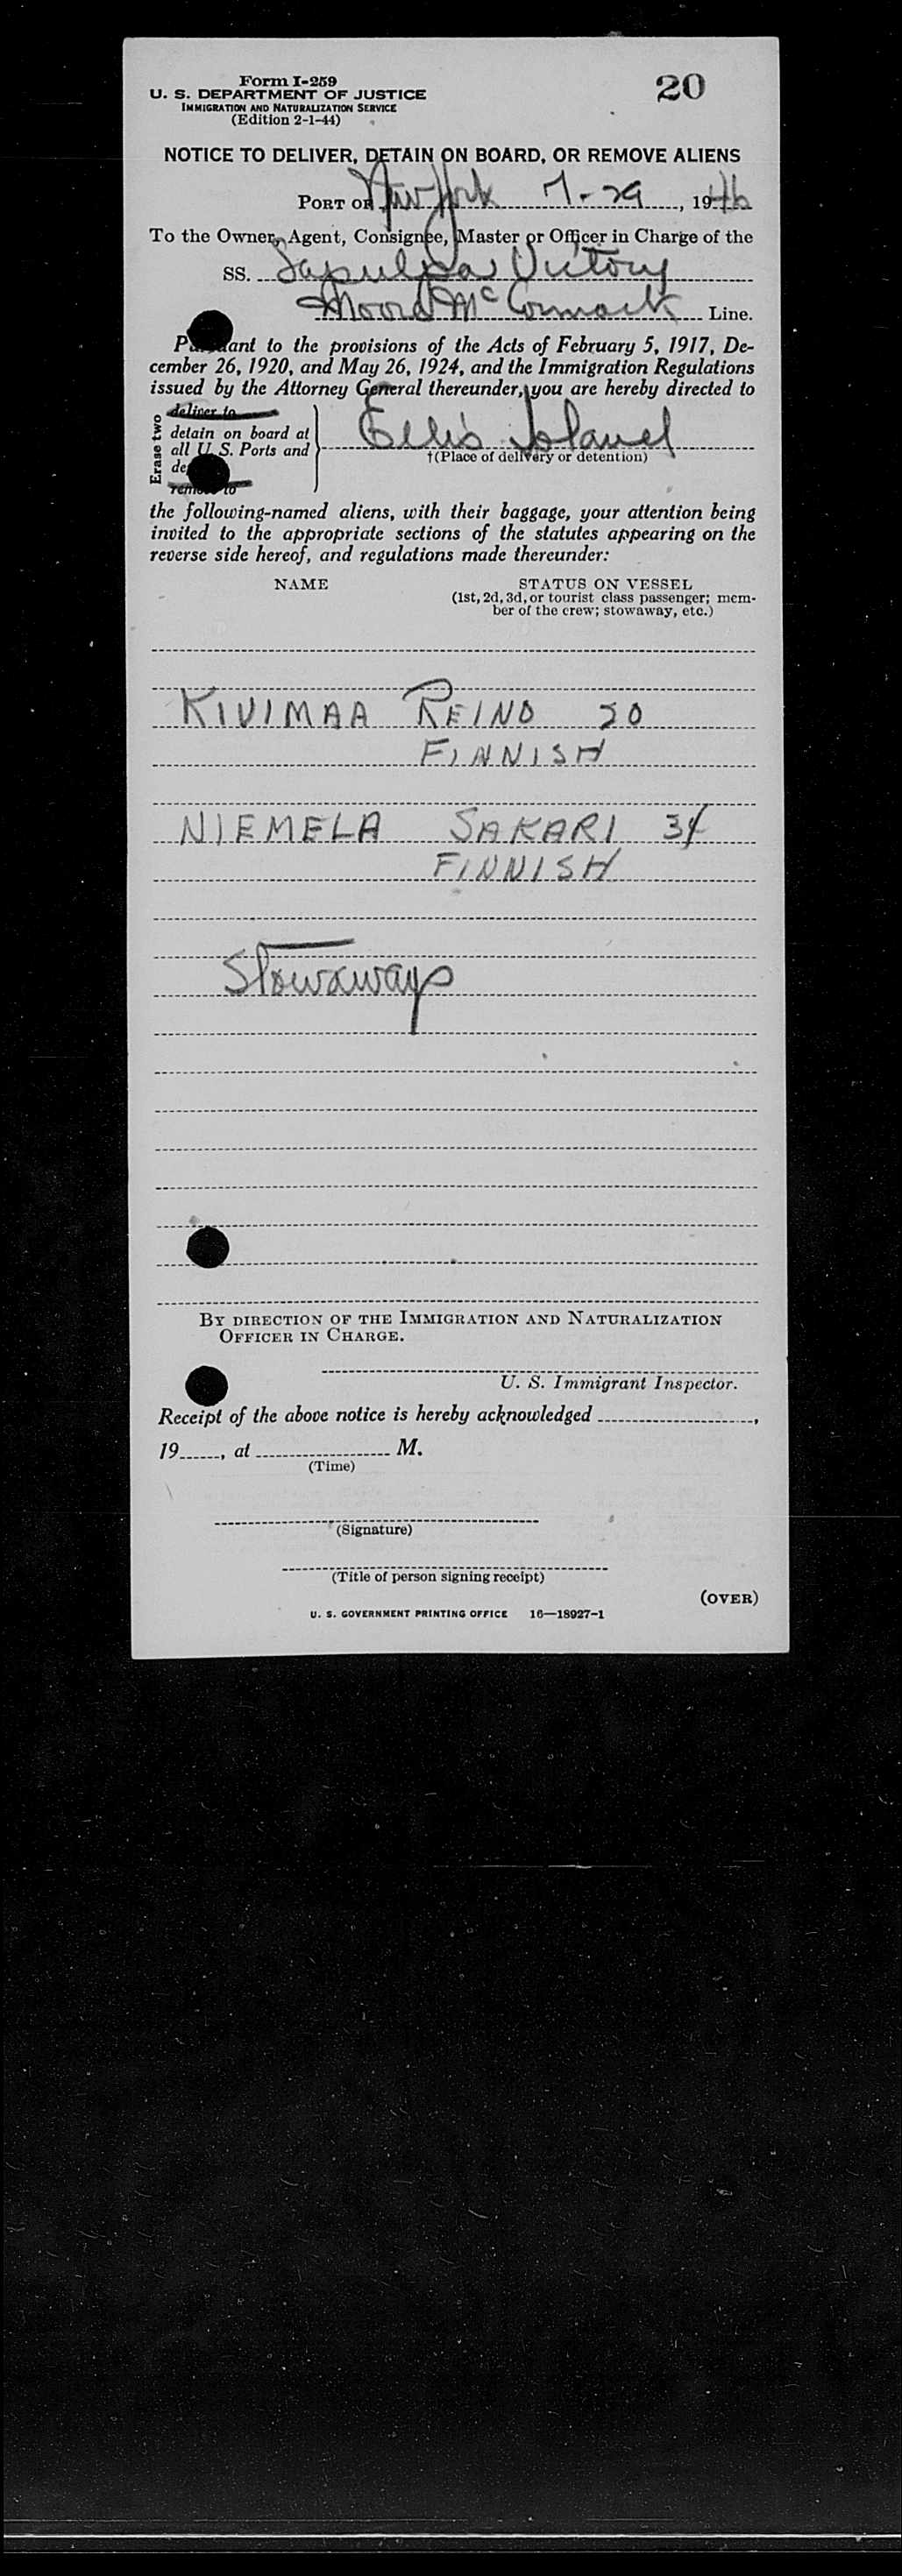 Form I-259
20
U. S. DEPARTMENT OF JUSTICE
IMMIGRATION AND NATURALIZATION SERVICE
(Edition 2-1-44)
NOTICE TO DELIVER, DETAIN ON BOARD, OR REMOVE ALIENS
PORT OF New York 7-29, 1946
To the Owner, Agent, Consignee, Master or Officer in Charge of the
SS. Sapulpa Victory
Moore McCormack Line.
Pursuant to the provisions of the Acts of February 5, 1917, De-
cember 26, 1920, and May 26, 1924, and the Immigration Regulations
issued by the Attorney General thereunder, you are hereby directed to
Erase two
deliver to
detain on board at
all U. S. Ports and
remove to
Ellis Island
†(Place of delivery or detention)
the following-named aliens, with their baggage, your attention being
invited to the appropriate sections of the statutes appearing on the
reverse side hereof, and regulations made thereunder:
NAME STATUS ON VESSEL
(1st, 2d, 3d, or tourist class passenger; mem-
ber of the crew; stowaway, etc.)
KIVIMAA REINO 20
FINNISH
NIEMELA SAKARI 34
FINNISH
Stowaways
BY DIRECTION OF THE IMMIGRATION AND NATURALIZATION
OFFICER IN CHARGE.
U. S. Immigrant Inspector.
Receipt of the above notice is hereby acknowledged ,
19 , at M.
(Time)
(Signature)
(Title of person signing receipt)
(OVER)
U. S. GOVERNMENT PRINTING OFFICE 16—18927-1